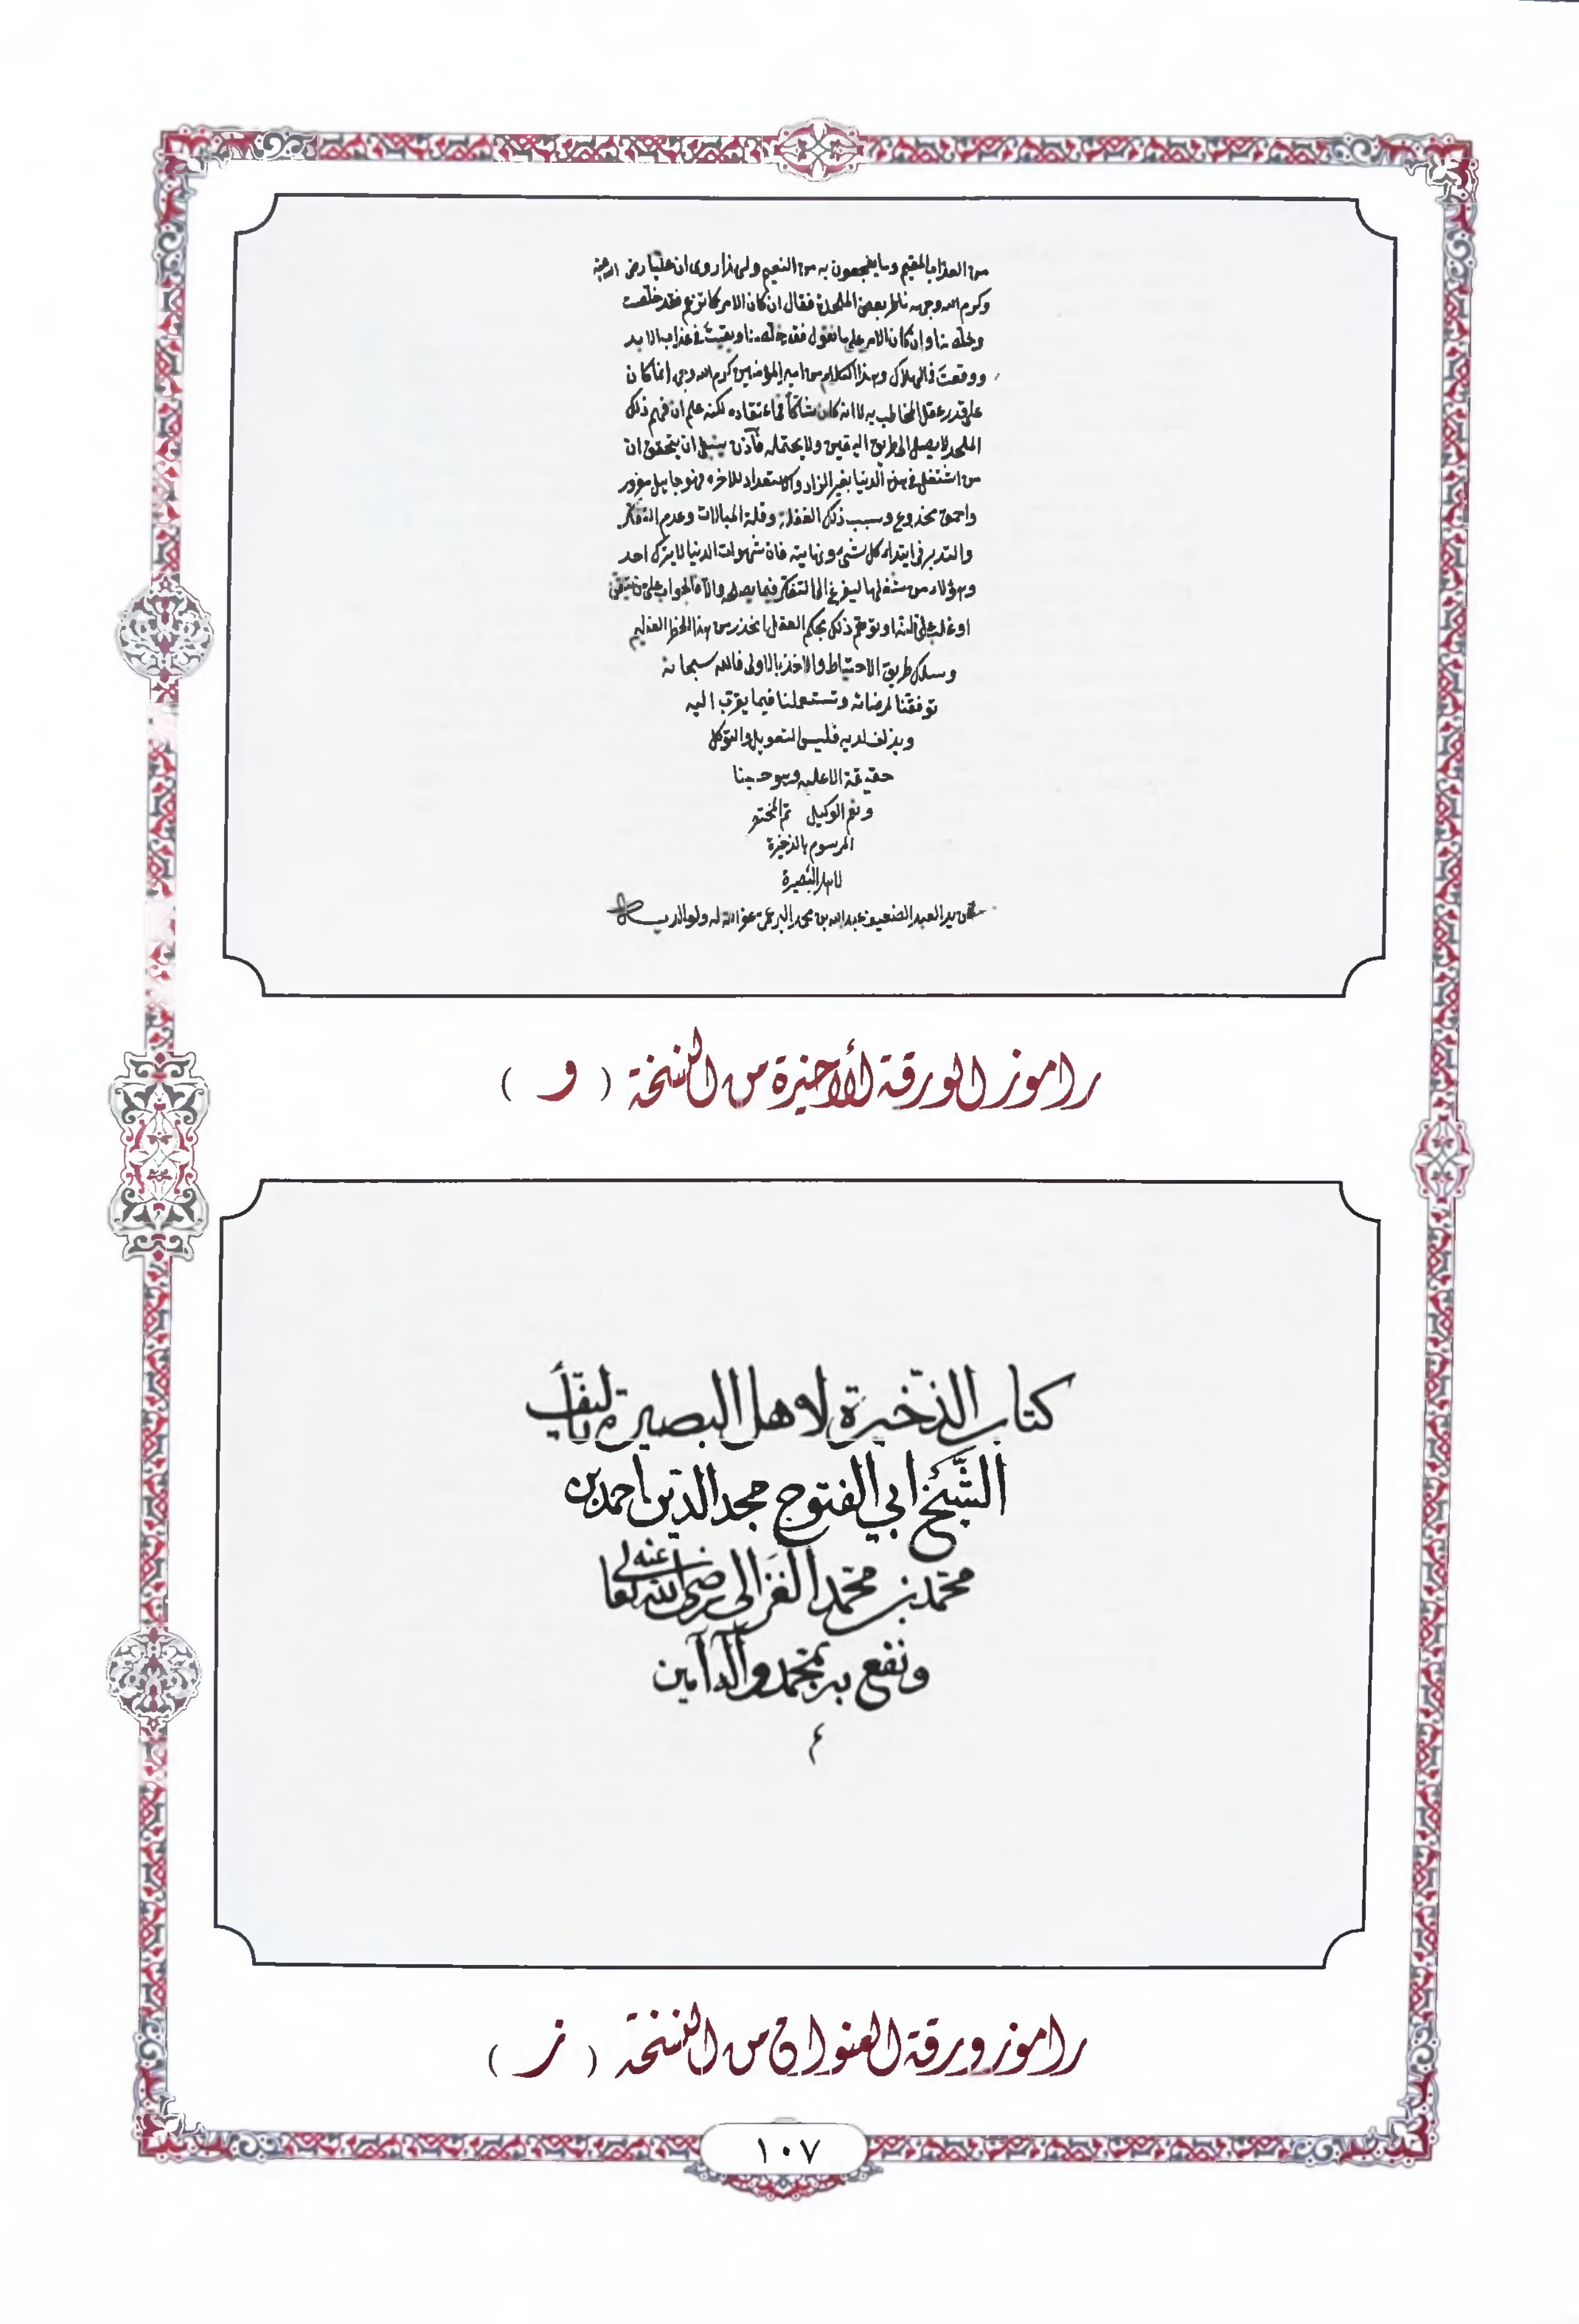 من العذاب المقيم وما يفجعون به من النعيم ولهذا روى ان عليا رضى الله عنه
وكرم الله وجهه ناظر بعض الملحدة فقال ان كان الامر كما تزعم فقد خلصت
وخلصنا وان كان الامر على ما نقول فقد خلصنا وبقيت في عذاب الابد
ووقعت في الهلاك وهذا الكلام من امير المؤمنين كرم الله وجهه انما كان
على قدر عقل المخاطب به لا انه كان شاكًا في اعتقاده لكنه علم ان فهم ذلك
الملحد لا يصل الى طريق اليقين ولا يحتمله فآذن ينبغي ان يتحقق ان
من اشتغل في هذه الدنيا بغير الزاد والاستعداد للاخره فهو جاهل مغرور
واحمق مخدوع وسبب ذلك الغفلة وقلة المبالات وعدم التفكر
والتدبر في ابتداء كل شيء ونهايته فان شهوات الدنيا لا يترك احد
وهؤلاء من شغلها ليفرغ الى التفكر فيما يصلحه والا فالجواب على من تيقن
او غلب على ظنه او توهم ذلك بحكم العقل ان يحذر من هذا الخطر العظيم
وسلك طريق الاحتياط والاخذ بالاولى فالله سبحانه
توفقنا لمرضاته وتستعملنا فيما يقرب اليه
ويزلف لديه فليس التعويل والتوكل
حقيقة الا عليه وهو حسبنا
ونعم الوكيل تم المختصر
المرسوم بالذخيرة
لاهل البصيرة
من يد العبد الضعيف عبد الله بن محمد غفر الله له ولوالديه
راموز الورقة الأخيرة من النسخة ( و )
كتاب الذّخيرة لاهل البصيرة تأليف
الشّيخ ابي الفتوح مجد الدّين احمد بن
محمّد بن محمّد الغزالي رضى الله تعالى عنه
ونفع به بمحمد وآله آمين
م
راموز ورقة العنوان من النسخة ( ز )
١٠٧